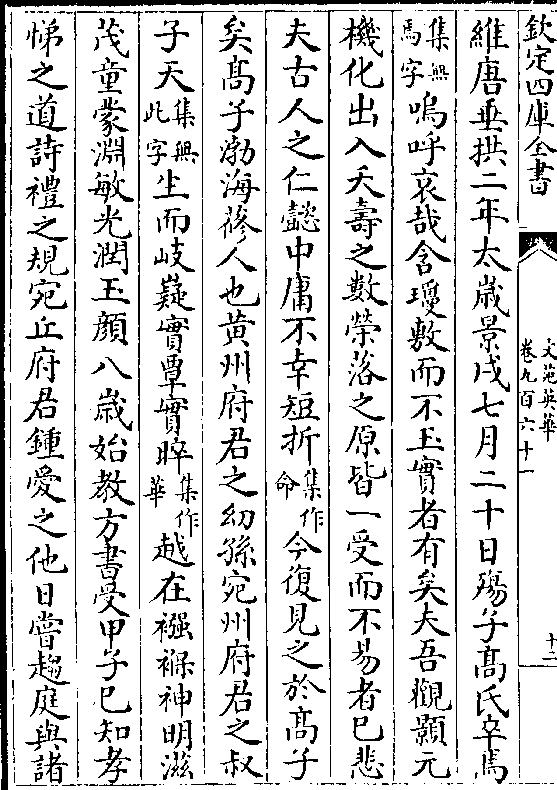 欽定四庫全書
文苑英華
卷九百六十一
十二
維唐垂拱二年太歲景戌七月二十日殤子高氏卒焉
集無焉字嗚呼哀哉含瓊敷而不玉實者有矣夫吾觀顥元
機化出入夭壽之數榮落之原皆一受而不易者已悲
夫古人之仁懿中庸不幸短折集作命今復見之於高子
矣高子渤海蓚人也黃州府君之幼孫宛州府君之叔
子天集無此字生而岐嶷實覃實晬集作華越在襁褓神明滋
茂童蒙淵敏光潤玉顏八歲始教方書受甲子已知孝
悌之道詩禮之規宛丘府君鍾愛之他日嘗趨庭與諸